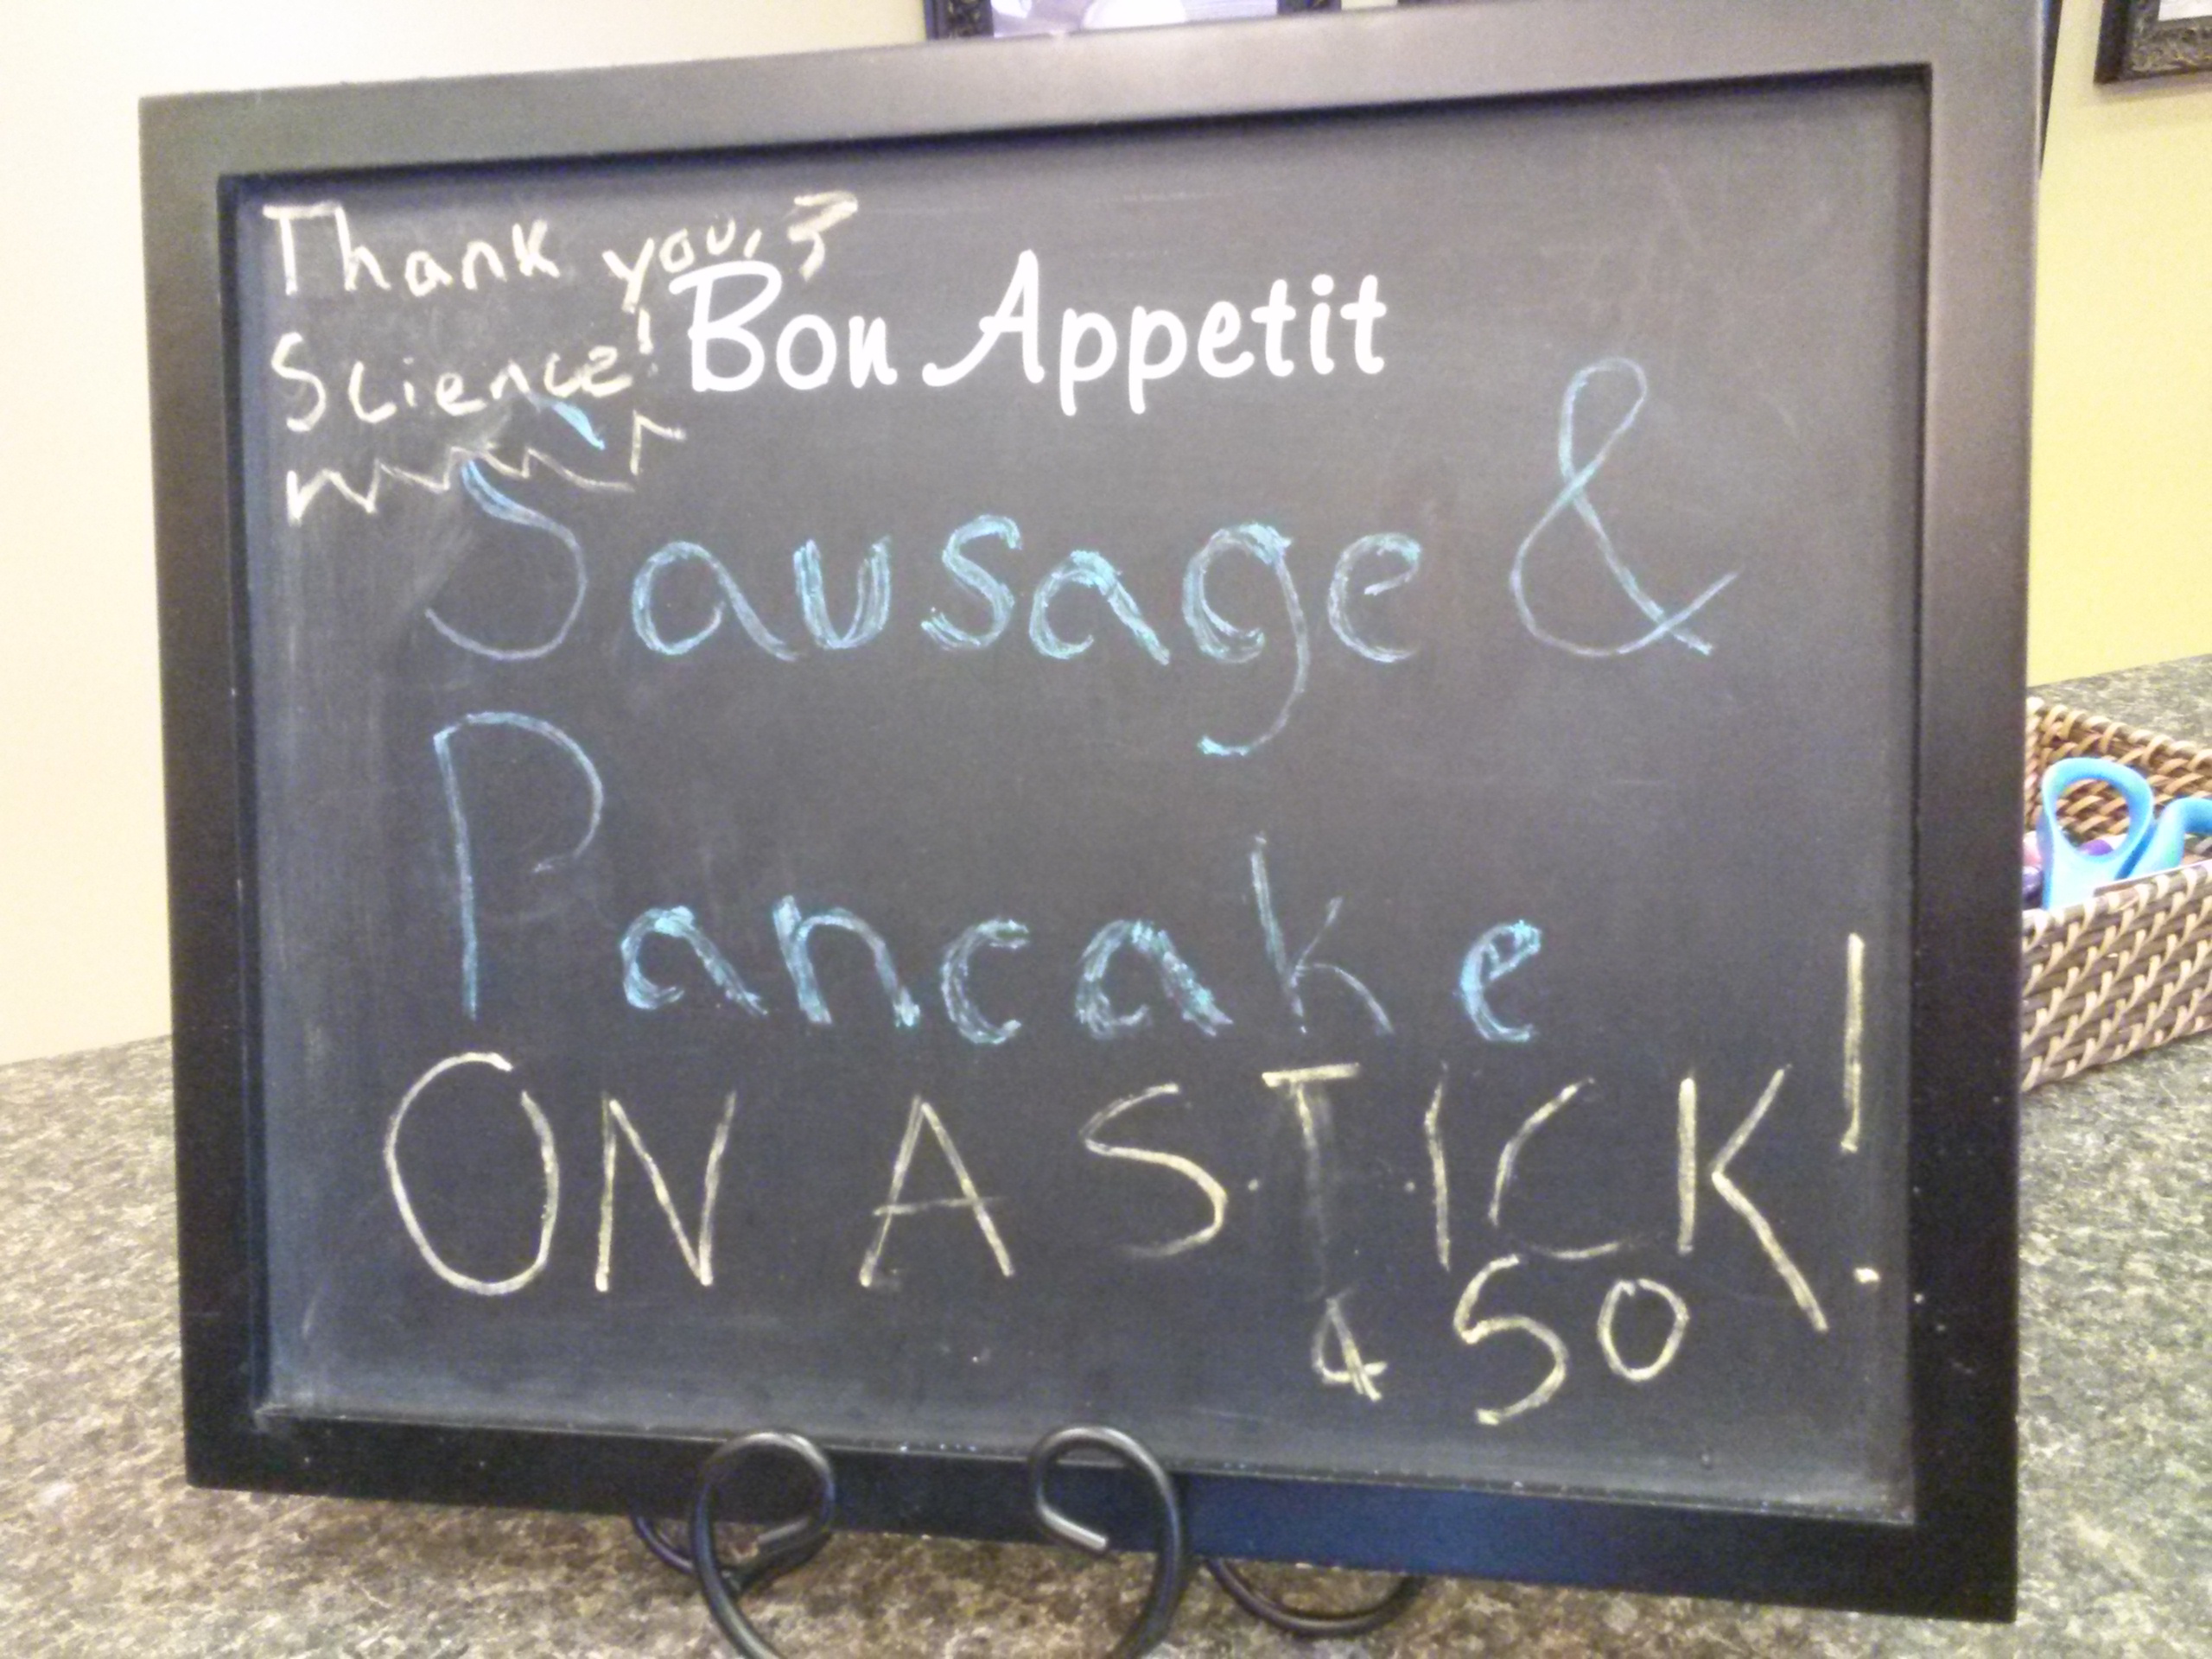 Thank you,
Science!
Bon Appetit
Sausage &
Pancake
ON A STICK!
450